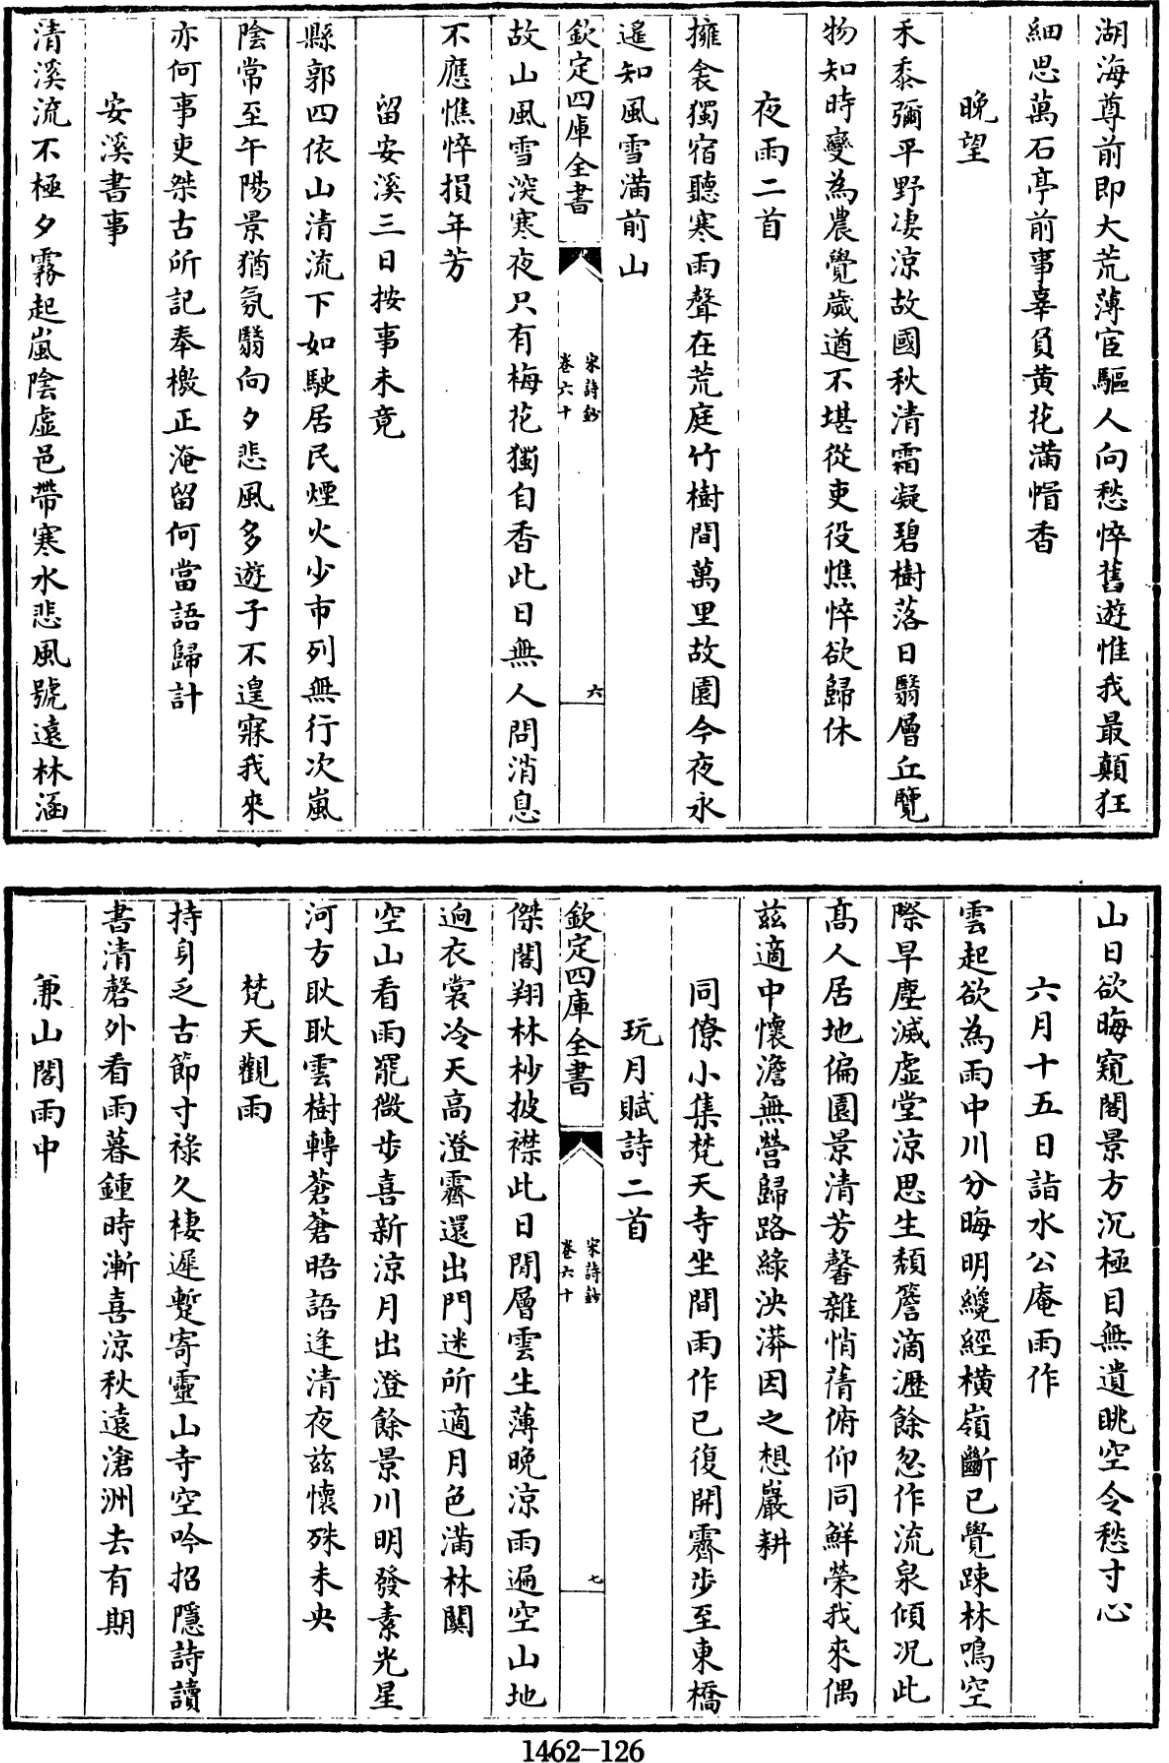 湖海尊前即大荒薄宦驅人向愁悴舊遊惟我最顛狂
細思萬石亭前事辜負黄花滿帽香
晩望
禾黍彌平野凄涼故國秋清霜凝碧樹落日翳層丘覽
物知時變為農覺歲遒不堪從吏役憔悴欲歸休
夜雨二首
擁衾獨宿聽寒雨聲在荒庭竹樹間萬里故園今夜永
遥知風雪滿前山
欽定四庫全書
宋詩鈔
卷六十
六
故山風雪深寒夜只有梅花獨自香此日無人問消息
不應憔悴損年芳
留安溪三日按事未竟
縣郭四依山清流下如駛居民煙火少市列無行次嵐
陰常至午陽景猶氛翳向夕悲風多遊子不遑寐我來
亦何事吏桀古所記奉檄正淹留何當語歸計
安溪書事
清溪流不極夕霧起嵐陰虚邑帶寒水悲風號遠林涵
山日欲晦窺閣景方沉極目無遺眺空令愁寸心
六月十五日詣水公庵雨作
雲起欲為雨中川分晦明纔經横嶺斷已覺踈林鳴空
際旱塵滅虚堂凉思生頽簷滴瀝餘忽作流泉傾况此
髙人居地偏園景清芳馨雜悄蒨俯仰同鮮榮我來偶
兹適中懷澹無營歸路緑泱漭因之想巖耕
同僚小集梵天寺坐間雨作已復開霽步至東橋
玩月賦詩二首
欽定四庫全書
宋詩鈔
卷六十
七
傑閣翔林杪披襟此日閒層雲生薄晩凉雨遍空山地
逈衣裳冷天高澄霽還出門迷所適月色滿林關
空山看雨罷微步喜新凉月出澄餘景川明發素光星
河方耿耿雲樹轉蒼蒼晤語逢清夜兹懷殊未央
梵天觀雨
持身乏古節寸禄久棲遲暫寄靈山寺空吟招隱詩讀
書清磬外看雨暮鍾時漸喜凉秋遠滄洲去有期
兼山閣雨中
1462-126